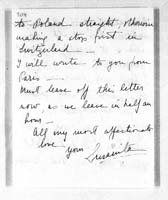 to Poland straight, otherwise
making a stop first in
Switzerland —
I will write to you from
Paris —
Must leave off this letter
now as we leave in half an
hour —
All my most affectionate
love your